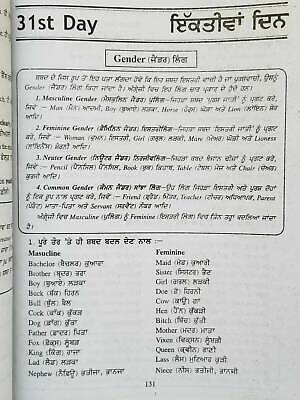 31st Day ਇਕੱਤੀਵਾਂ ਦਿਨ
Gender (ਜੈਂਡਰ) ਲਿੰਗ
ਸ਼ਬਦ ਦੇ ਜਿਸ ਰੂਪ ਤੋਂ ਇਹ ਪਤਾ ਲਗਦਾ ਹੋਵੇ ਕਿ ਇਹ ਸ਼ਬਦ ਇਸਤਰੀ ਵਾਚੀ ਹੈ ਜਾਂ ਪੁਰਸ਼ਵਾਚੀ, ਉਸਨੂੰ
Gender (ਜੈਂਡਰ) ਲਿੰਗ ਕਿਹਾ ਜਾਂਦਾ ਹੈ। ਅੰਗ੍ਰੇਜ਼ੀ ਵਿਚ ਇਹ ਲਿੰਗ ਚਾਰ ਪ੍ਰਕਾਰ ਦੇ ਹੁੰਦੇ ਹਨ।
1. Masculine Gender (ਮੈਸਕੂਲਿਨ ਜੈਂਡਰ) ਪੁਲਿੰਗ—ਜਿਹੜਾ ਸ਼ਬਦ ਪੁਰਸ਼ ਜਾਤੀ ਨੂੰ ਪ੍ਰਗਟ ਕਰੇ,
ਜਿਵੇਂ — Man (ਮੈਨ) ਆਦਮੀ, Boy (ਬੁਆਏ) ਲੜਕਾ, Horse (ਹੋਰਸ) ਘੋੜਾ ਅਤੇ Lion (ਲਾਇਨ) ਸ਼ੇਰ
ਆਦਿ।
2. Feminine Gender (ਫੈਮਿਨਿਨ ਜੈਂਡਰ) ਇਸਤਰੀਲਿੰਗ—ਜਿਹੜਾ ਸ਼ਬਦ ਇਸਤਰੀ ਜਾਤੀ ਨੂੰ ਪ੍ਰਗਟ
ਕਰੇ, ਜਿਵੇਂ — Woman (ਵੂਮੈਨ) ਇਸਤਰੀ, Girl (ਗਰਲ) ਲੜਕੀ, Mare (ਮੇਅਰ) ਘੋੜੀ ਅਤੇ Lioness
(ਲਾਇਨੈਸ) ਸ਼ੇਰਨੀ ਆਦਿ।
3. Neuter Gender (ਨਿਊਟਰ ਜੈਂਡਰ) ਨਿਰਜੀਵਲਿੰਗ—ਜਿਹੜਾ ਸ਼ਬਦ ਬੇਜਾਨ ਚੀਜ਼ਾਂ ਨੂੰ ਪ੍ਰਗਟ ਕਰੇ,
ਜਿਵੇਂ — Pencil (ਪੈਨਸਿਲ) ਪੈਨਸਿਲ, Book (ਬੁਕ) ਕਿਤਾਬ, Table (ਟੇਬਲ) ਮੇਜ਼ ਅਤੇ Chair (ਚੇਅਰ)
ਕੁਰਸੀ ਆਦਿ।
4. Common Gender (ਕੌਮਨ ਜੈਂਡਰ) ਸਾਂਝਾ ਲਿੰਗ—ਉਹ ਜਿਹੜਾ ਇਸਤਰੀ ਅਤੇ ਪੁਰਸ਼ ਦੋਹਾਂ
ਨੂੰ ਇਕ ਰੂਪ ਨਾਲ ਪ੍ਰਗਟ ਕਰੇ, ਜਿਵੇਂ — Friend (ਫ੍ਰੈਂਡ) ਮਿੱਤਰ, Teacher (ਟੀਚਰ) ਅਧਿਆਪਕ, Parent
(ਪੇਰੈਂਟ) ਮਾਤਾ-ਪਿਤਾ ਅਤੇ Servant (ਸਰਵੈਂਟ) ਨੌਕਰ ਆਦਿ।
ਅੰਗ੍ਰੇਜ਼ੀ ਵਿਚ Masculine (ਪੁਲਿੰਗ) ਨੂੰ Feminine (ਇਸਤਰੀ ਲਿੰਗ) ਵਿਚ ਤਿੰਨ ਤਰ੍ਹਾਂ ਬਦਲਿਆ ਜਾਂਦਾ
ਹੈ।
1. ਪੂਰੇ ਤੌਰ 'ਤੇ ਹੀ ਸ਼ਬਦ ਬਦਲ ਦੇਣ ਨਾਲ :-
Masculine Feminine
Bachelor (ਬੈਚਲਰ) ਕੁਆਰਾ Maid (ਮੇਡ) ਕੁਆਰੀ
Brother (ਬ੍ਰਦਰ) ਭਰਾ Sister (ਸਿਸਟਰ) ਭੈਣ
Boy (ਬੁਆਏ) ਲੜਕਾ Girl (ਗਰਲ) ਲੜਕੀ
Buck (ਬੱਕ) ਹਿਰਨ Doe (ਡੋ) ਹਿਰਨੀ
Bull (ਬੁੱਲ) ਬੈਲ Cow (ਕਾਊ) ਗਾਂ
Cock (ਕਾੱਕ) ਕੁੱਕੜ Hen (ਹੈੱਨ) ਕੁੱਕੜੀ
Dog (ਡਾੱਗ) ਕੁੱਤਾ Bitch (ਬਿੱਚ) ਕੁੱਤੀ
Father (ਫ਼ਾਦਰ) ਪਿਤਾ Mother (ਮਦਰ) ਮਾਤਾ
Fox (ਫ਼ੋਕਸ) ਲੂੰਬੜ Vixen (ਵਿਕਸਨ) ਲੂੰਬੜੀ
King (ਕਿੰਗ) ਰਾਜਾ Queen (ਕੁਵੀਨ) ਰਾਣੀ
Lad (ਲੈਡ) ਲੜਕਾ Lass (ਲੈੱਸ) ਮੁਟਿਆਰ ਕੁੜੀ
Nephew (ਨੈਫ਼ਿਊ) ਭਤੀਜਾ, ਭਾਣਜਾ Niece (ਨੀਸ) ਭਤੀਜੀ, ਭਾਣਜੀ
131